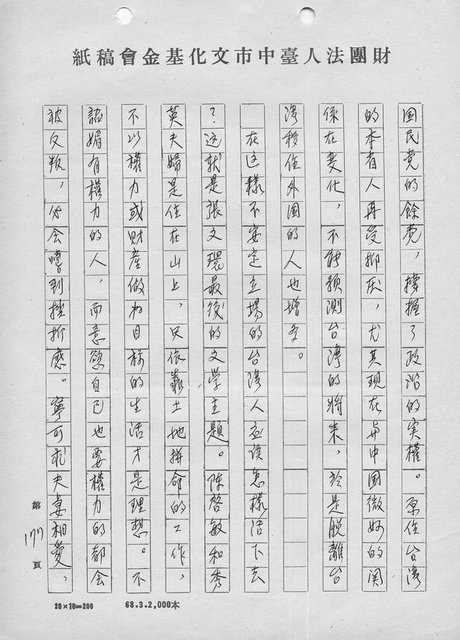 財團法人臺中市文化基金會稿紙
国民党的餘党，擄握了政治的実權。原住台湾
的本省人再受抑压，尤其现在与中国微妙的関
係在变化，不能预测台湾的將来，於是脱離台
湾移住外国的人也增多。
在这樣不安定立場的台湾人应該怎樣活下去
？这就是張文環最後的文学主題。陳啓敏和秀
英夫婦是住在山上，只依靠土地拼命的工作，
不以權力或财産做為目标的生活才是理想。不
諂媚有權力的人，而意慾自己也要權力的都会
被反叛，必会嚐到挫折感。寧可求夫妻相愛，
第 177 頁
20×10=200 68.3.2,000本